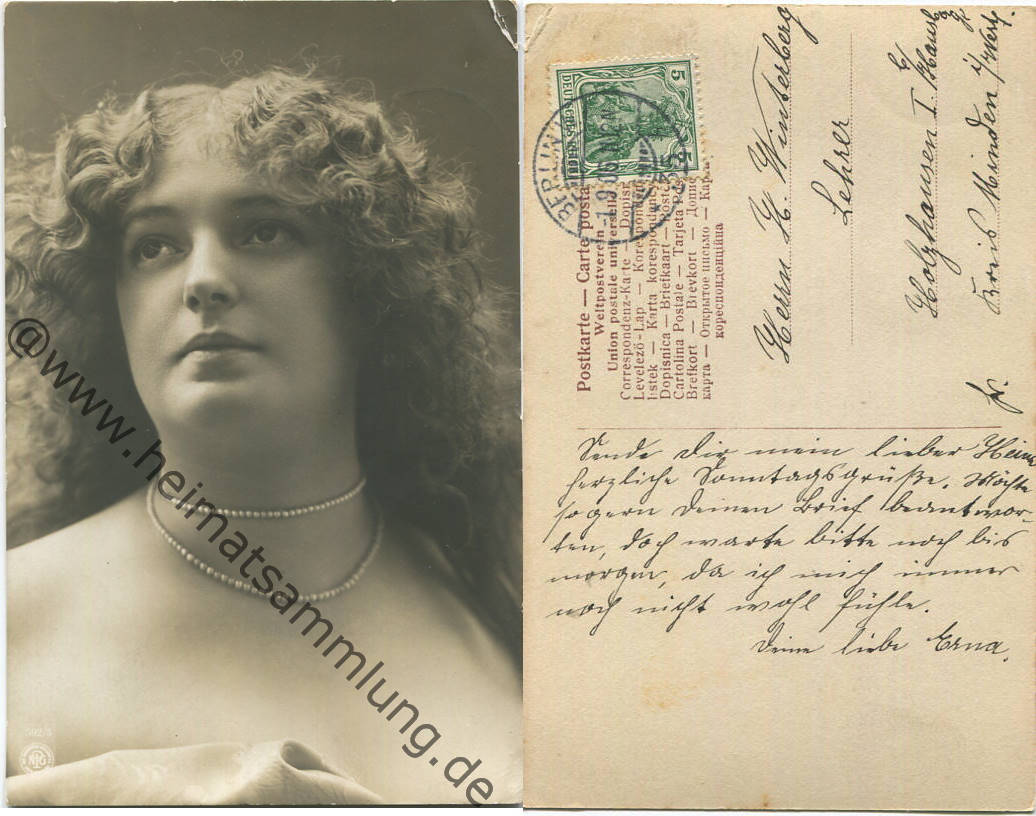 @www.heimatsammlung.de
592/5
NPG
DEUTSCHES REICH
5
BERLIN
-1.9.06
Postkarte — Carte postale
Weltpostverein
Union postale universelle
Correspondenz-Karte — Dopisnice
Levelező-Lap — Korespondenčn
listek — Karta korespondencyjna
Dopisnica — Briefkaart — Postcard
Cartolina Postale — Tarjeta Postal
Brefkort — Brevkort — Дописна
карта — Открытое письмо — Карта
кореспонденційна
Herrn H. Winterberg
Lehrer
Holzhausen I.
Kreis Minden i/Westf.
Sende dir mein lieber
herzliche Sonntagsgrüße. Möchte
so gern deinen Brief beantwor-
ten, doch warte bitte noch bis
morgen, da ich mich immer
noch nicht wohl fühle.
Deine liebe Erna.